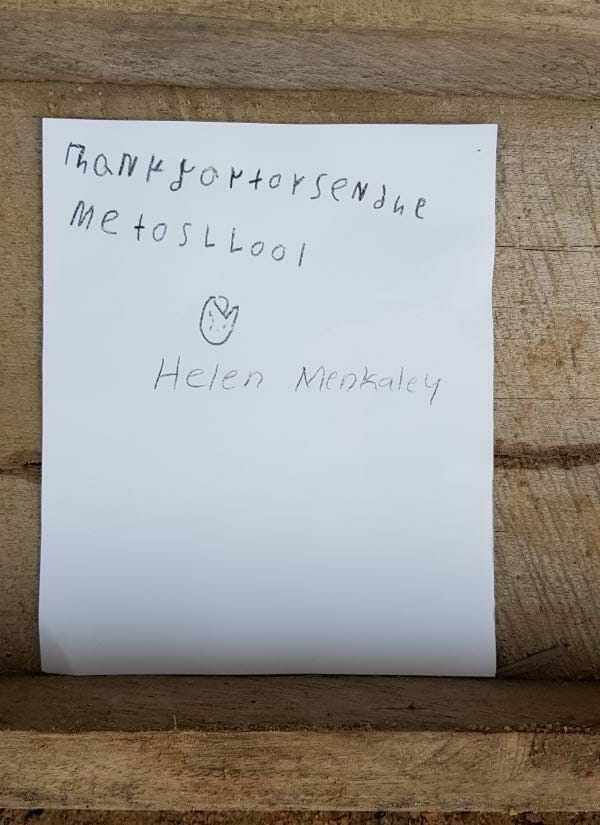 ThaNkfortorseNdhe
MetosLLool
Helen Menkaley